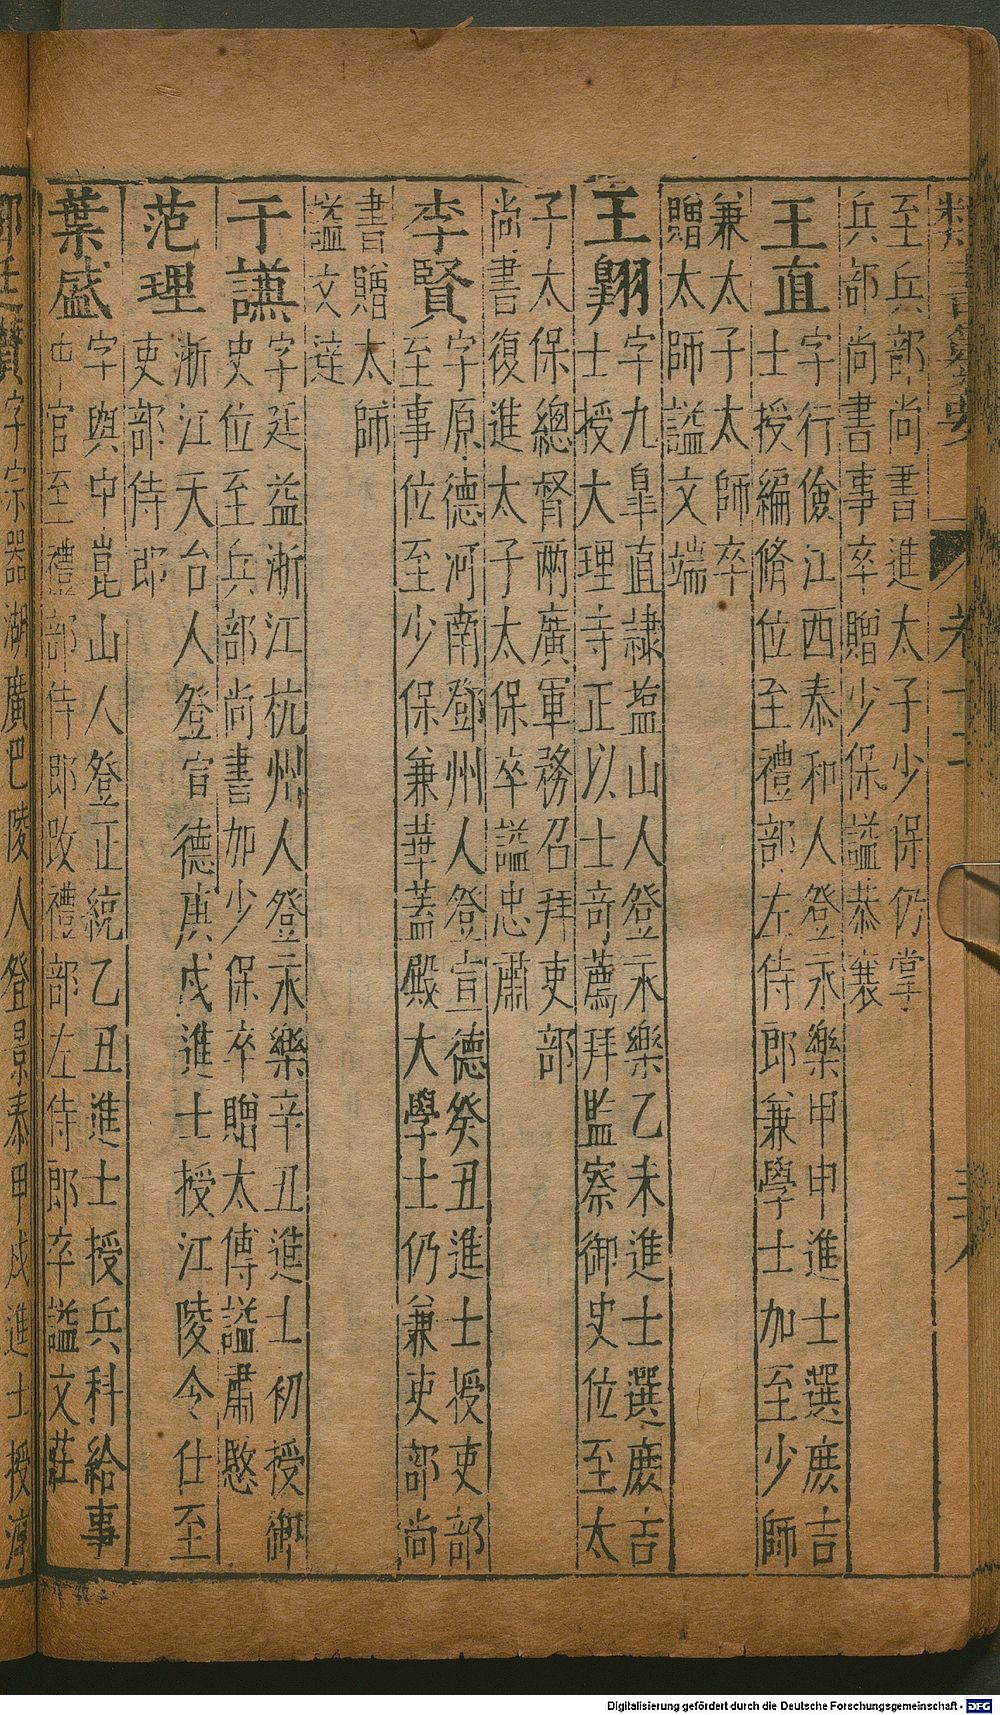 至兵部尚書進太子少保仍掌
兵部尚書事卒贈少保諡恭襄
王直
字行儉江西泰和人登永樂甲申進士選庶吉
士授編脩位至禮部左侍郎兼學士加至少師
兼太子太師卒
贈太師諡文端
王翱
字九皐直隷塩山人登永樂乙未進士選庶吉
士授大理寺正以士竒薦拜監察御史位至太
子太保總督兩廣軍務召拜吏部
尚書復進太子太保卒諡忠肅
李賢
字原德河南鄧州人登宣德癸丑進士授吏部
至事位至少保兼華蓋殿大學士仍兼吏部尚
書贈太師
諡文達
于謙
字延益浙江杭州人登永樂辛丑進士初授御
史位至兵部尚書加少保卒贈太傅諡肅愍
范理
浙江天台人登宣德庚戌進士授江陵令仕至
吏部侍郎
葉盛
字與中崑山人登正統乙丑進士授兵科給事
中官至禮部侍郎改禮部左侍郎卒諡文莊
字宗器湖廣巴陵人登景泰甲戌進士授
Digitalisierung gefördert durch die Deutsche Forschungsgemeinschaft - DFG